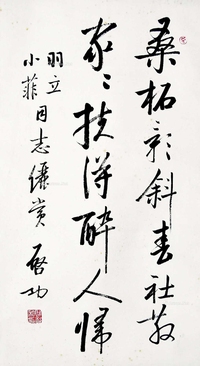 桑柘影斜春社散
家〻扶得醉人归
羽立
小菲同志俪赏 启功